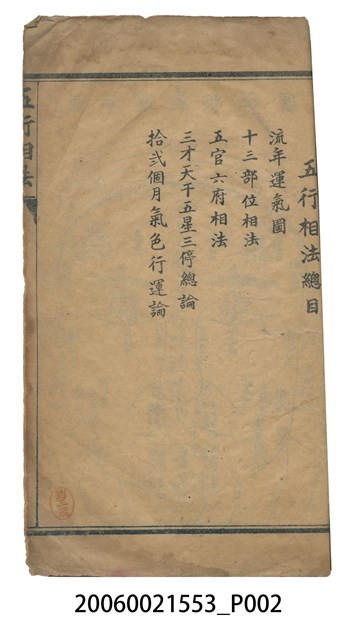 五行相法總目
流年運氣圖
十三部位相法
五官六府相法
三才天干五星三停總論
拾弍個月氣色行運論
五行相法
20060021553_P002